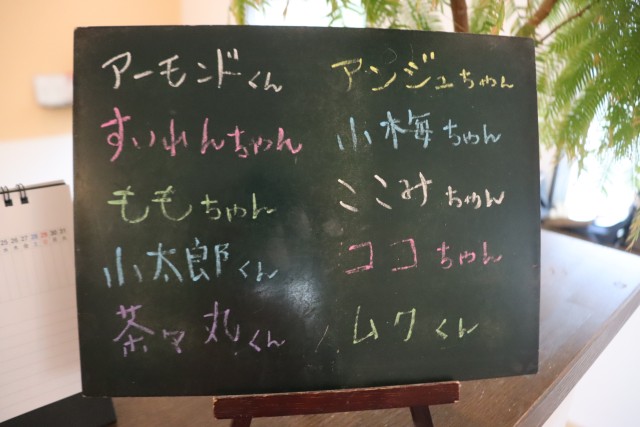 アーモンドくん
アンジュちゃん
すいれんちゃん
小梅ちゃん
ももちゃん
ここみちゃん
小太郎くん
ココちゃん
茶々丸くん
ムクくん
25 26 27 28 29 30 31